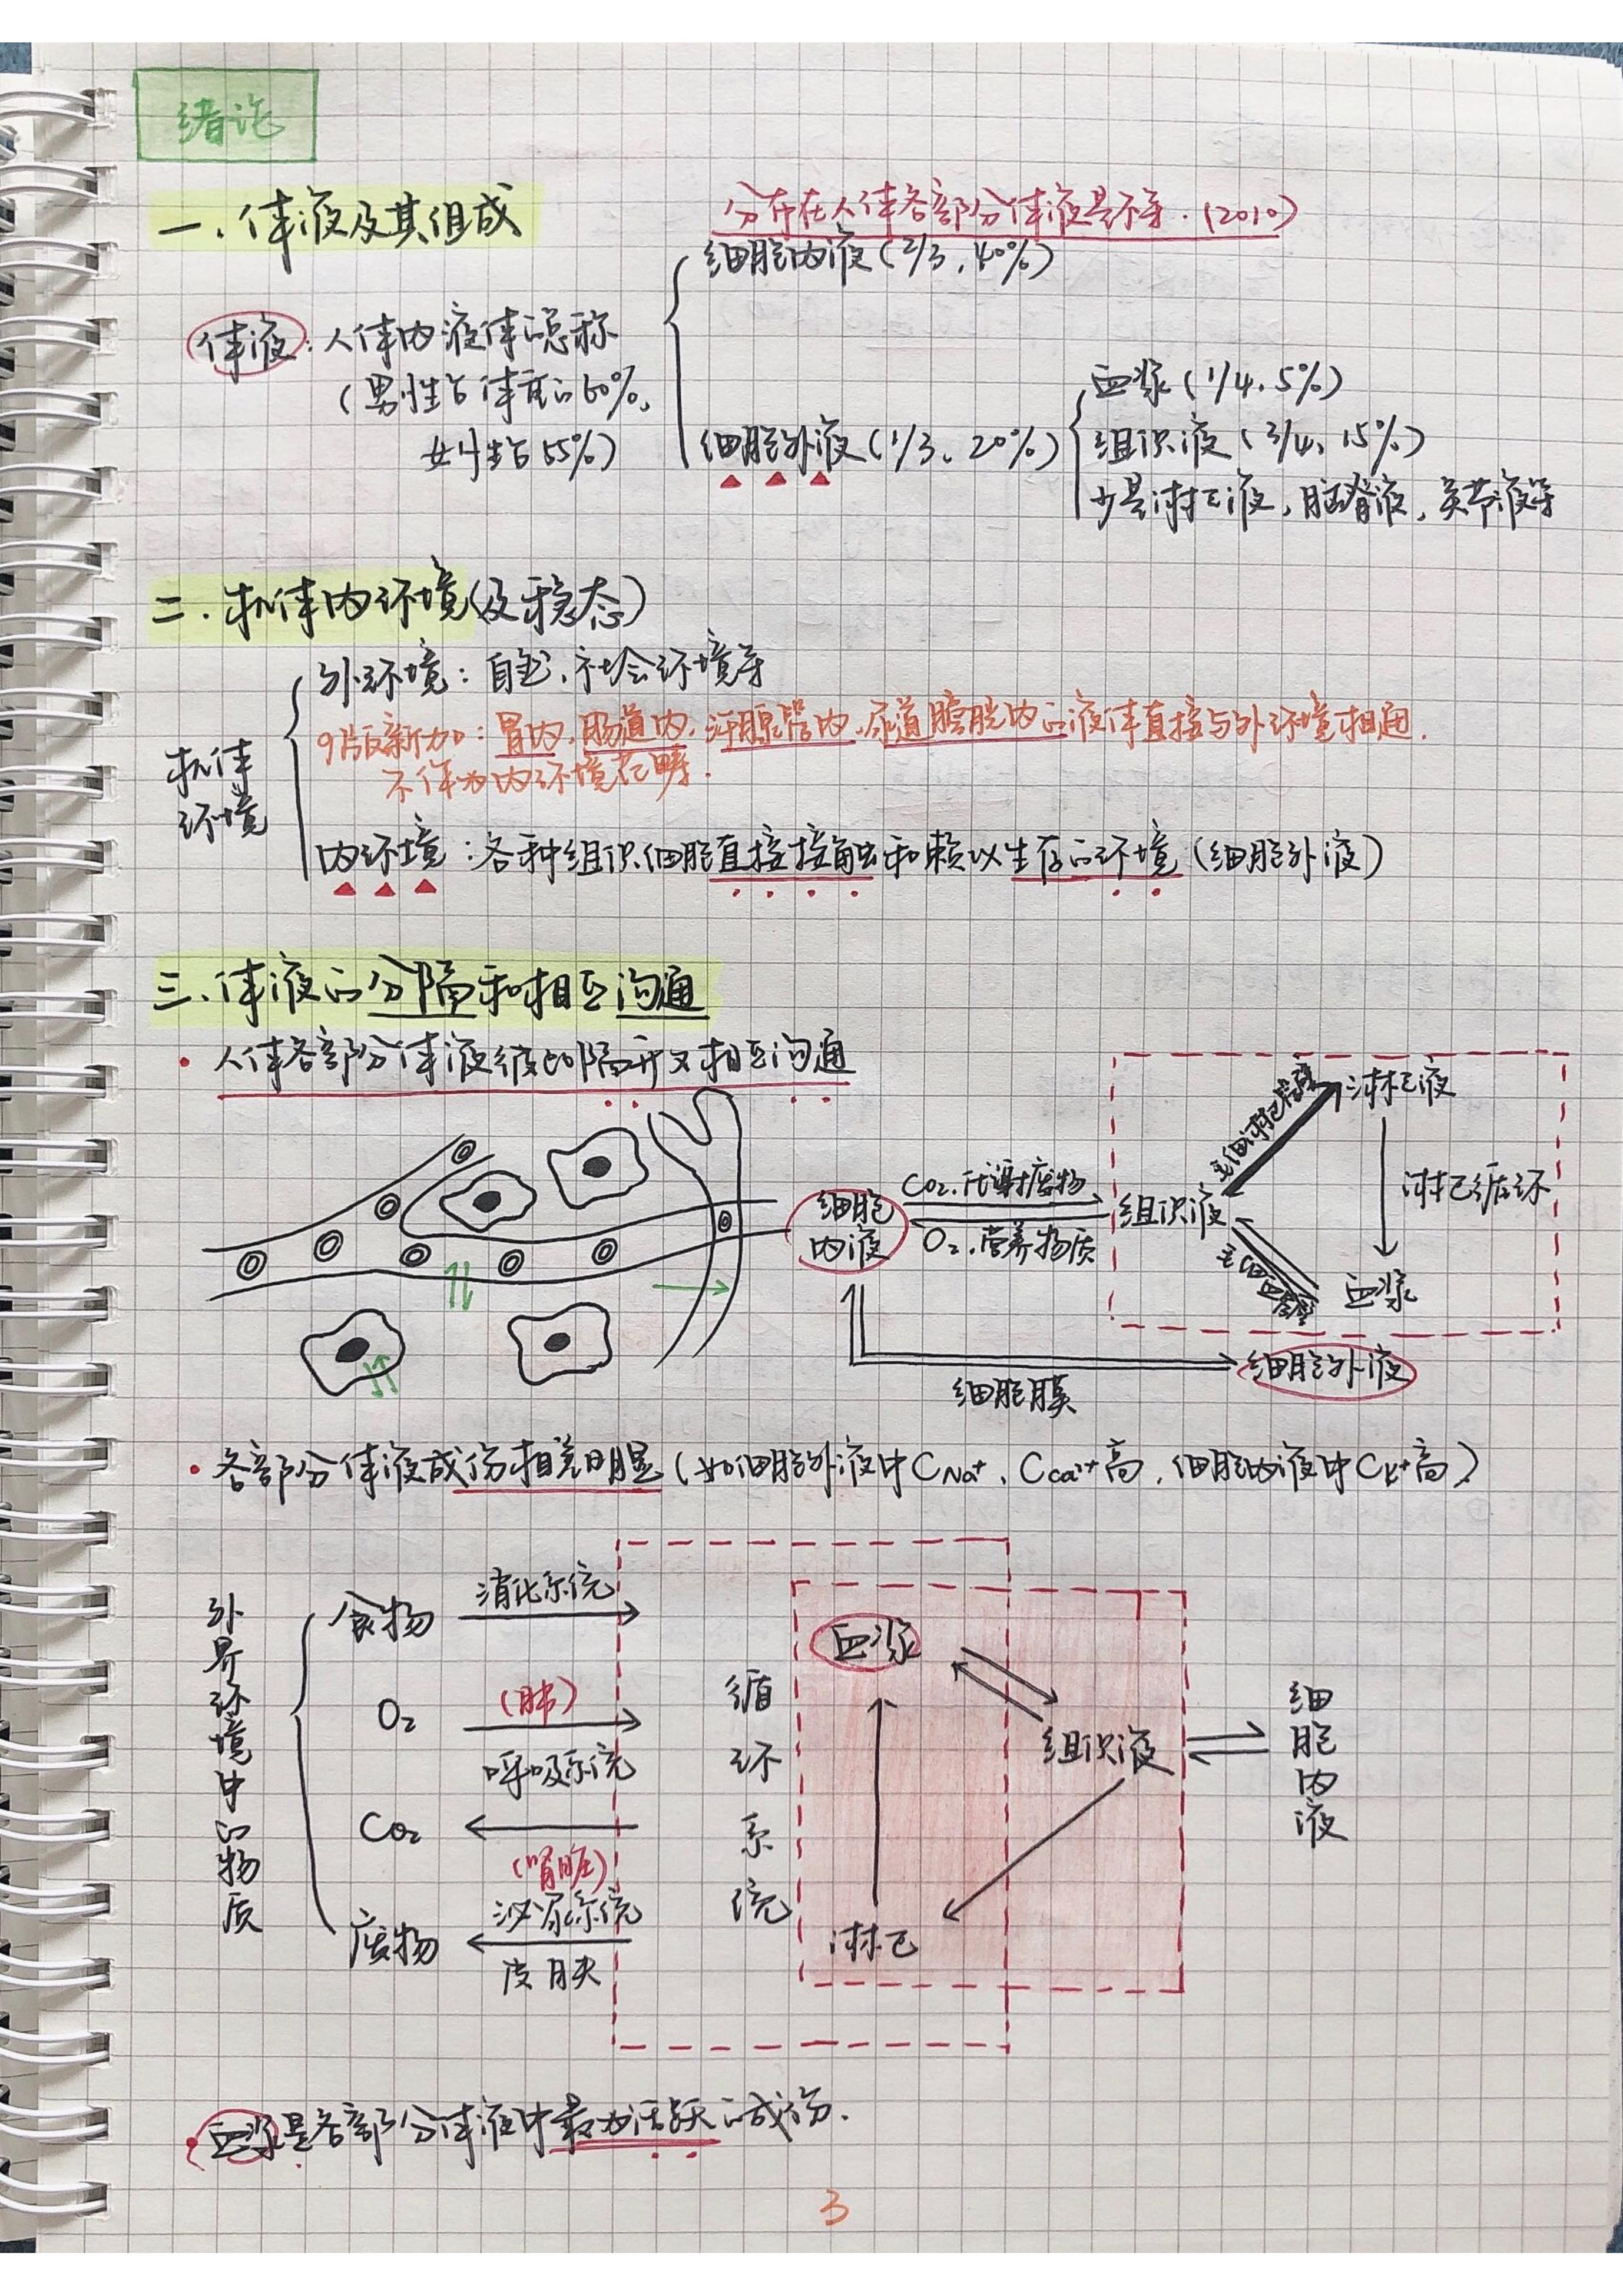 绪论
一.体液及其组成
分布在人体各部分体液量不等.(2010)
细胞内液(2/3,40%)
体液:人体内液体的总称
(男性占体重的60%,
女性占55%)
细胞外液(1/3、20%)
血浆(1/4、5%)
组织液(3/4、15%)
少量淋巴液,脑脊液,关节液等
二.机体内环境(及稳态)
机体
环境
外环境:自然、社会环境等
9版新加:胃内、肠道内、汗腺管内、尿道膀胱内的液体直接与外环境相通.
不作为内环境范畴.
内环境:各种组织细胞直接接触和赖以生存的环境(细胞外液)
三.体液的分隔和相互沟通
·人体各部分体液彼此隔开又相互沟通
细胞
内液
CO₂、代谢废物
O₂、营养物质
组织液
毛细淋巴管壁
淋巴液
淋巴循环
毛细血管壁
血浆
细胞外液
细胞膜
·各部分体液成份相差明显(如细胞外液中CNa⁺、Cca²⁺高,细胞内液中CK⁺高)
外界环境中的物质
食物
消化系统
O₂
(肺)
呼吸系统
CO₂
(肾脏)
泌尿系统
废物
皮肤
循环系统
血浆
组织液
淋巴
细胞内液
·血浆是各部分体液中最为活跃的成份.
3